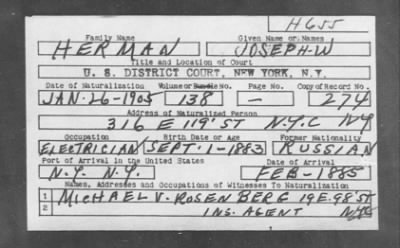 H655
Family Name Given Name or Names
HERMAN JOSEPH-W
Title and Location of Court
U. S. DISTRICT COURT, NEW YORK, N.Y.
Date of Naturalization Volume or Bundle No. Page No. Copy of Record No.
JAN-26-1905 138 — 274
Address of Naturalized Person
316 E 119' ST N.Y.C NY
Occupation Birth Date or Age Former Nationality
ELECTRICIAN SEPT-1-1883 RUSSIAN
Port of Arrival in the United States Date of Arrival
N.Y. N.Y. FEB-1885
Names, Addresses and Occupations of Witnesses To Naturalization
1 MICHAEL V. ROSENBERG 19 E. 98' ST
2 INS. AGENT NYC